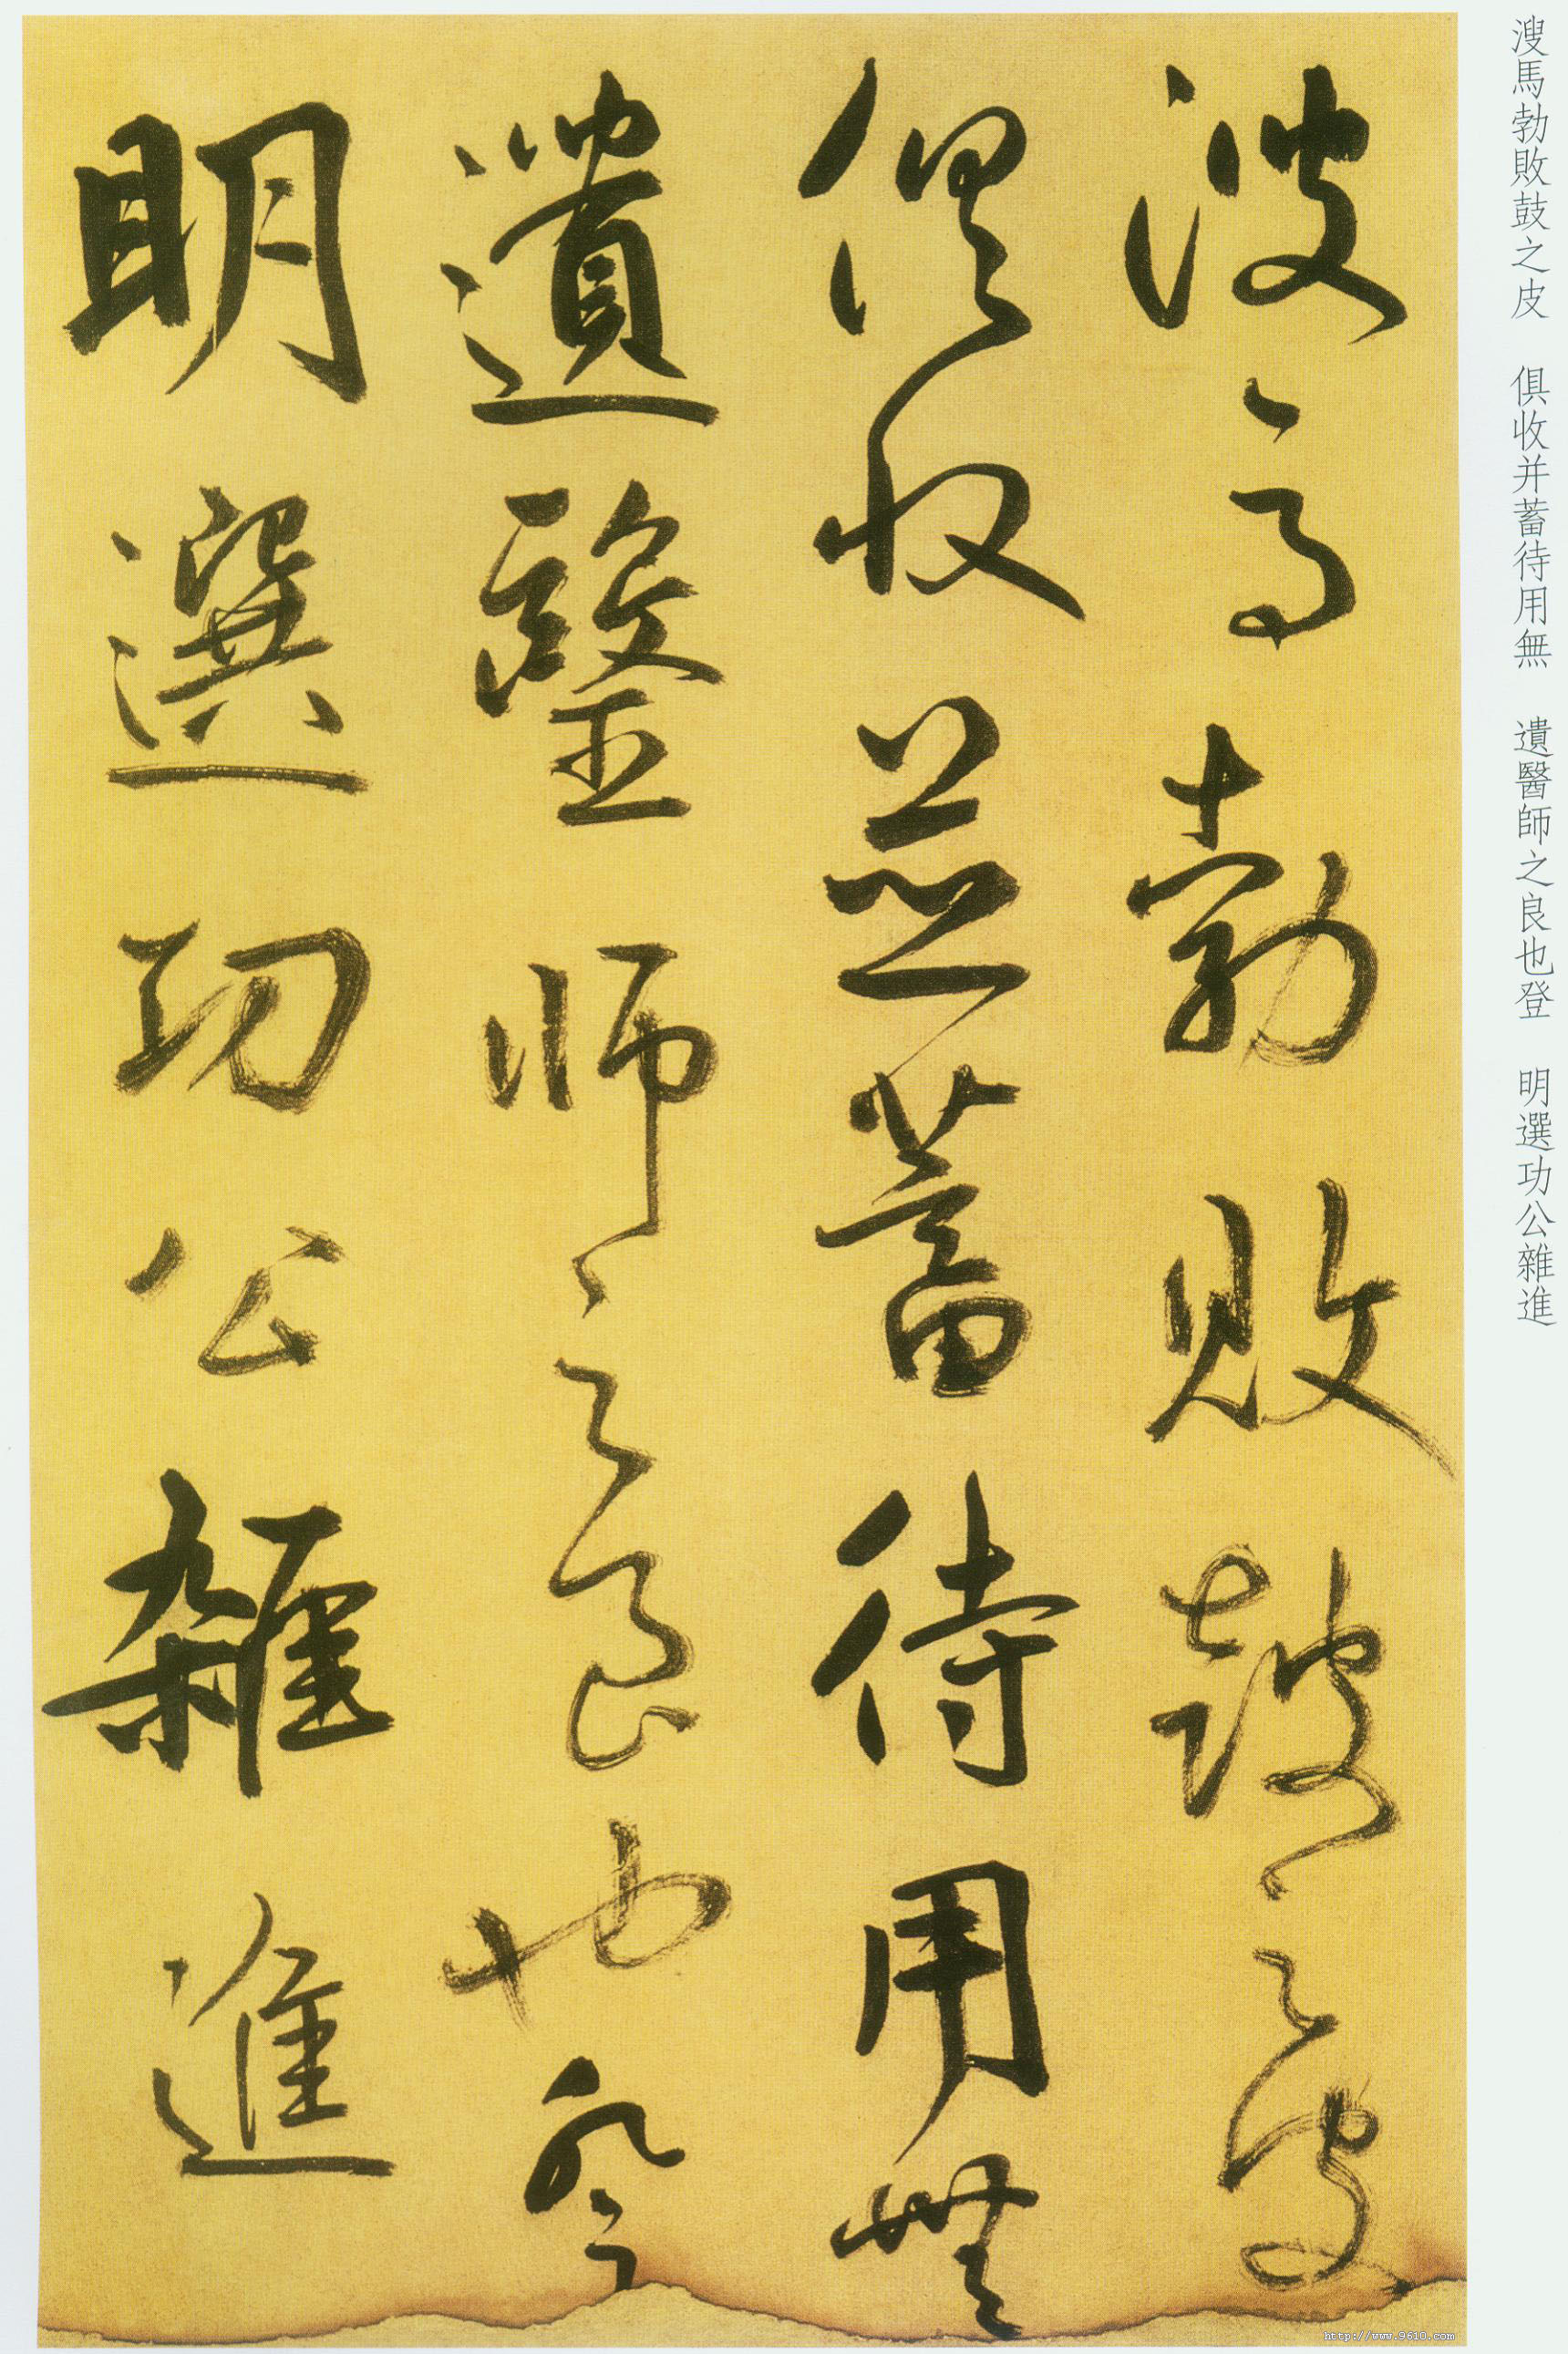 溲馬勃敗鼓之皮 俱收并蓄待用無 遺醫師之良也登 明選功公雜進
溲馬勃敗鼓之皮
俱收並蓄待用無
遺醫師之良也登
明選功公雜進
http://www.9610.com